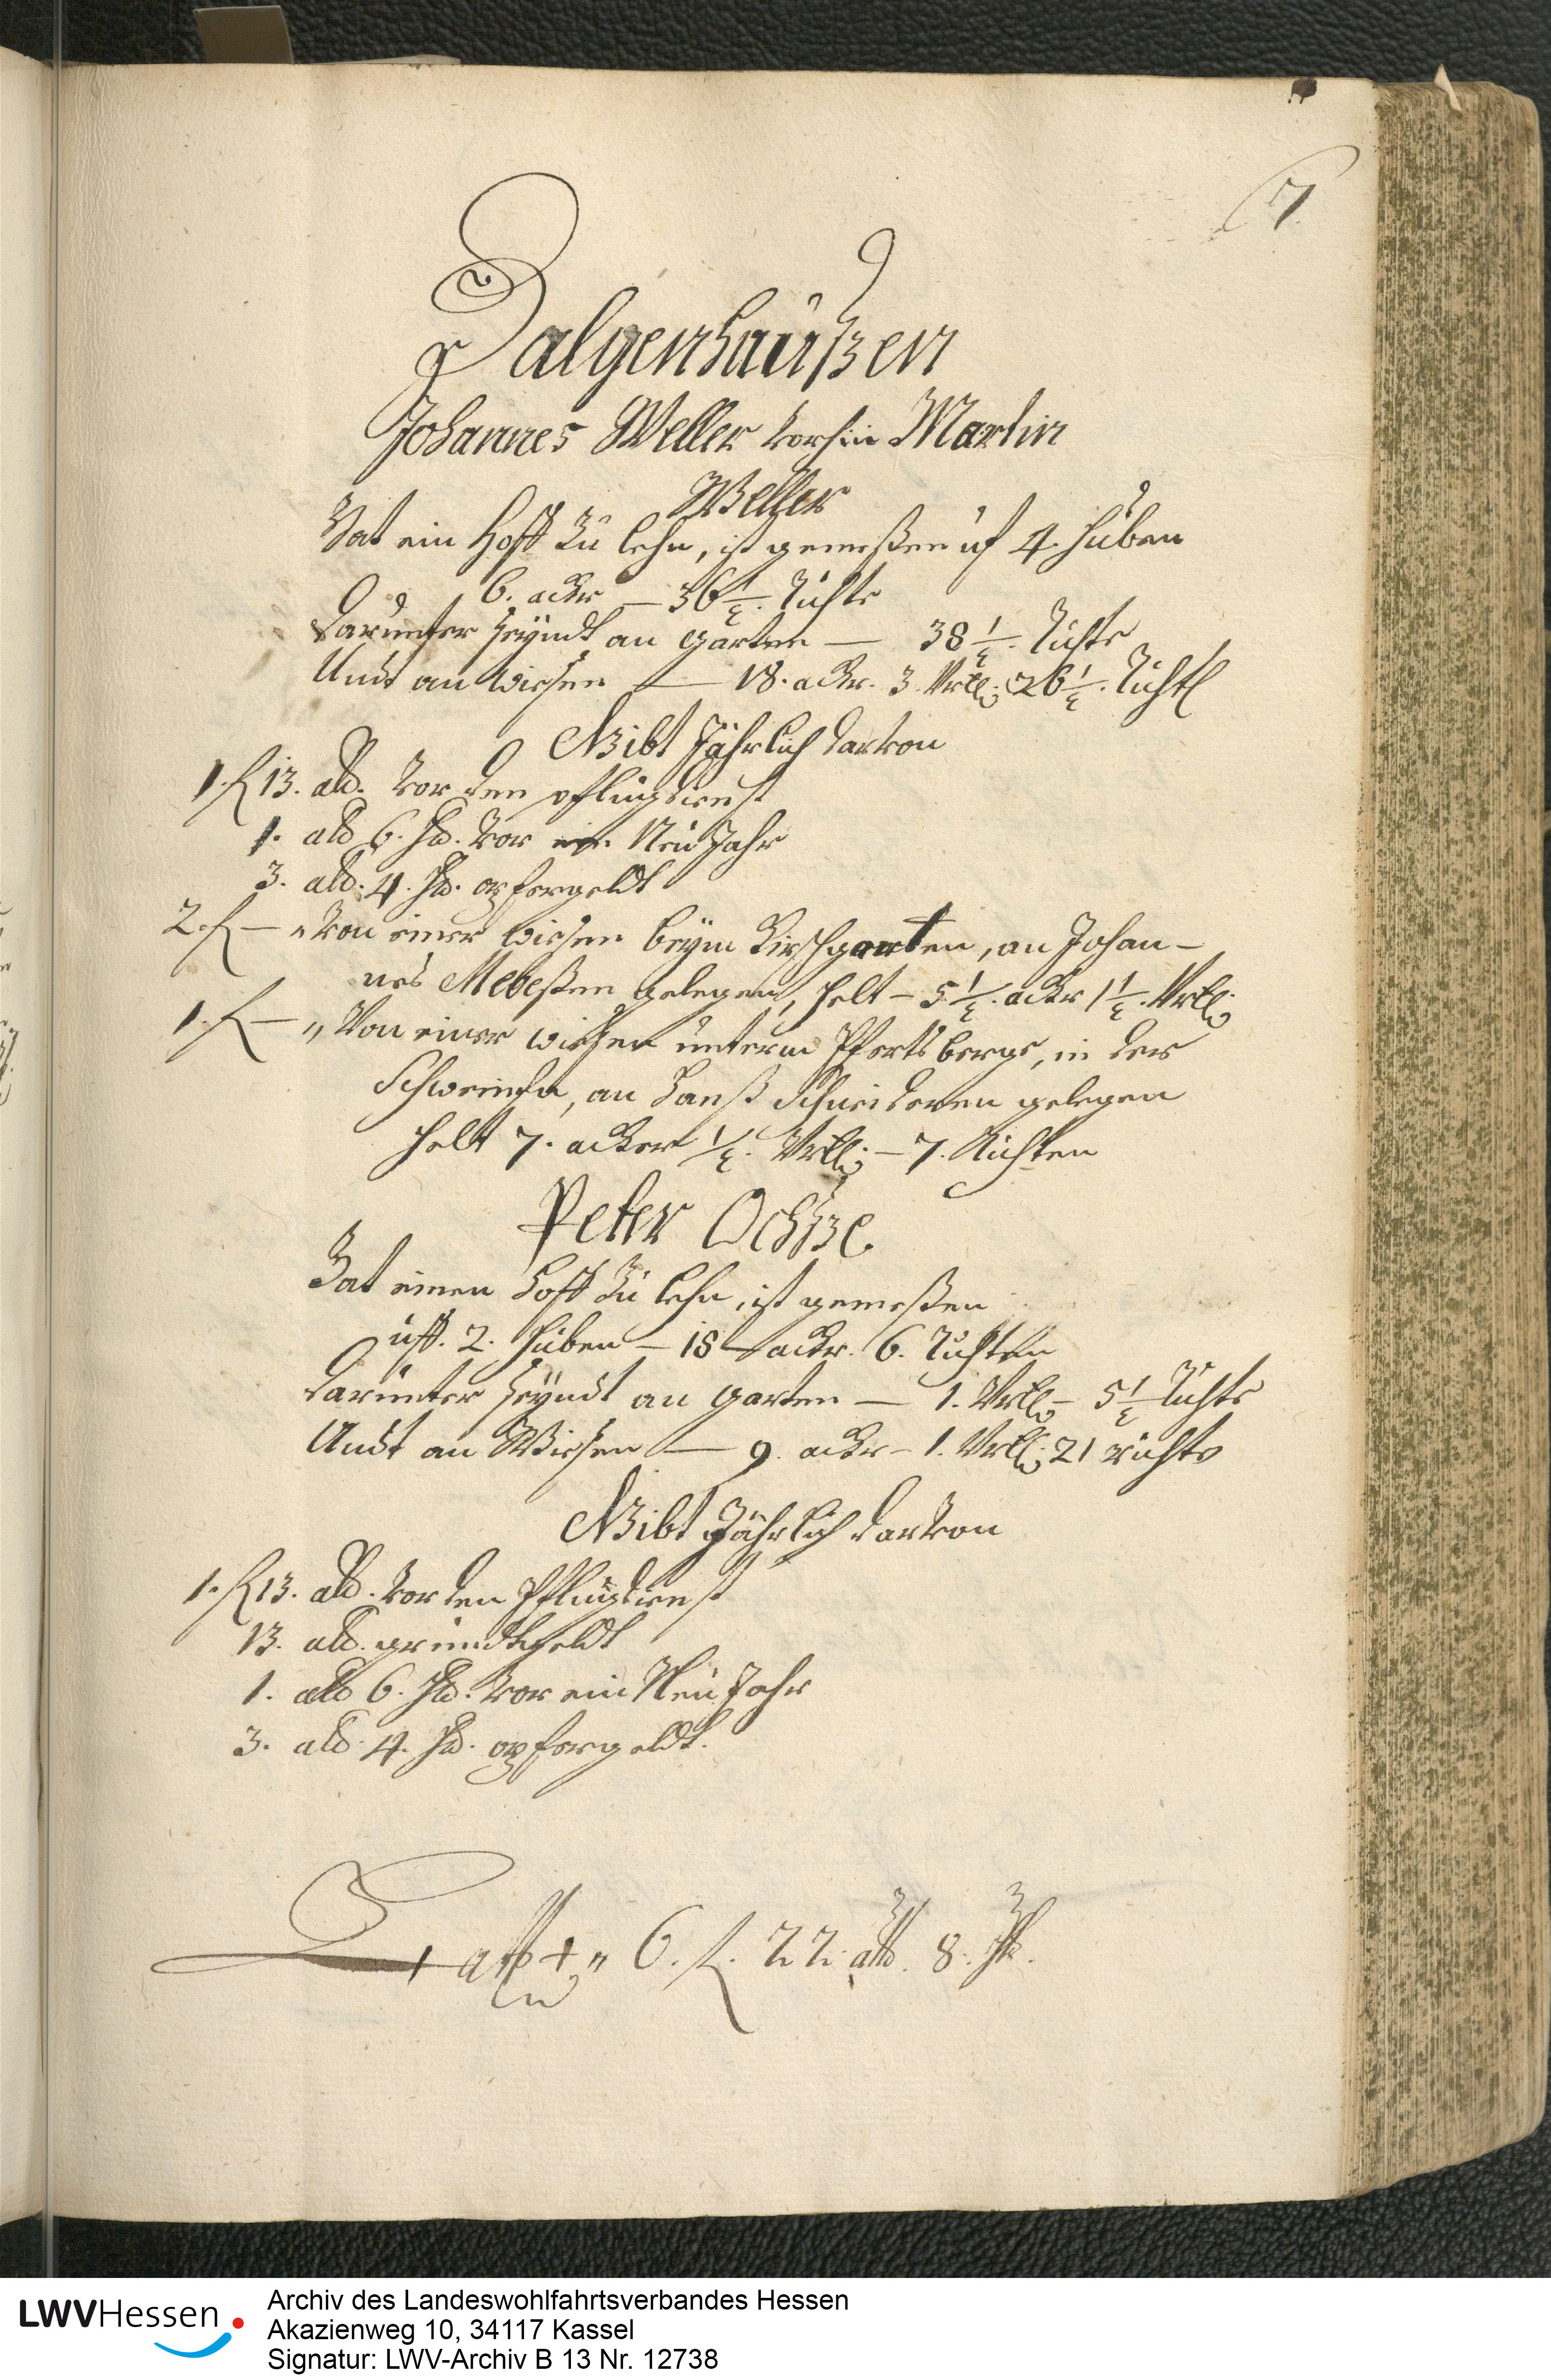 7.
Dalgenhaußen
Johannes Weller vorhin Martin
Weller
Hat ein Hoff zu lehn, ist gemeßen uf 4. Huben
6. ackr — 36 1/2. Ruhte
Darunter seyndt an garten — 38 1/2. Ruhte
Undt an Wiesen — 18. ackr. 3. Vrtl. 26 1/2. Ruht
Gibt Jährlich darvon
1. f 13. alb. vor den pflugdienst
1. alb 6. hlr. vor ein Neu Jahr
3. alb. 4. hlr. opfergeldt
2. f — „ Von einer wiesen beym Kirschgarten, an Johan-
nes Mebeßen gelegen, helt — 5 1/2. ackr 1 1/2. Vrtl.
1. f — „ Von einer wiesen unterm Pfertsberge, in der
an Hanß Schneideren gelegen
helt 7. acker 1/2. Vrtl. — 7. Ruhten
Peter Ochße.
Hat einen Hoff zu lehn, ist gemeßen
uff. 2. Huben — 18 ackr. 6. Ruhten
Darunter seyndt an garten — 1. Vrtl. — 5 1/2 Ruhte
Undt an Wiesen — 9. ackr — 1. Vrtl. 21 ruhte
Gibt Jährlich darvon
1. f 13. alb. vor den Pflugdienst
13. alb. grundtgeldt
1. alb 6. hlr. vor ein Neu Jahr
3. alb. 4. hlr. opfergeldt.
Lat. „ 6. f. 22. alb. 8. hlr.
LWVHessen
Archiv des Landeswohlfahrtsverbandes Hessen
Akazienweg 10, 34117 Kassel
Signatur: LWV-Archiv B 13 Nr. 12738